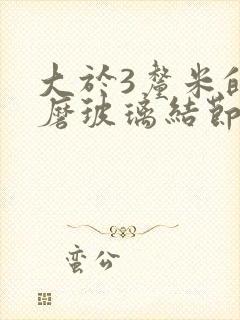 大於3釐米的
磨玻璃結節
蛮公